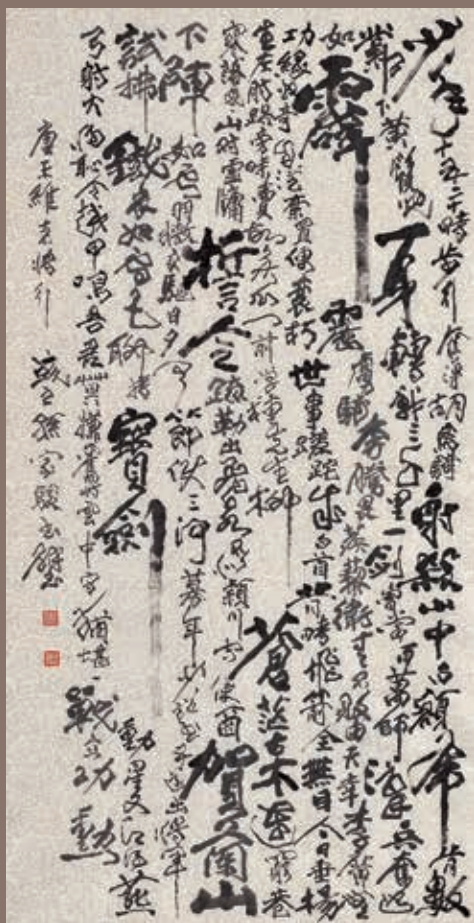 少年十五二十時步行奪得胡馬騎射殺山中白額虎肯數
鄴下黃鬚兒一身轉戰三千里一劍曾當百萬師漢兵奮迅
如霹靂虜騎崩騰畏蒺藜衛青不敗由天幸李廣無
功緣數奇自從棄置便衰朽世事蹉跎成白首昔時飛箭全無目今日垂楊
生左肘路旁時賣故侯瓜門前學種先生柳蒼茫古木連窮巷
寥落寒山對虛牖誓令疏勒出飛泉不似潁川空使酒賀蘭山
下陣如雲羽檄交馳日夕聞節使三河募年少詔書五道出將軍
試拂鐵衣如雪色聊持寶劍動星文願得燕
弓射大將恥令越甲鳴吾君莫嫌舊日雲中守猶堪一戰取功勳
唐王維老將行